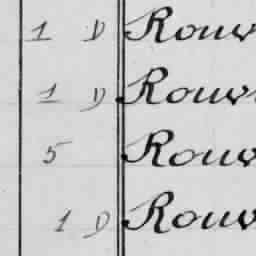 1 D Rouv
1 D Rouv
5 Rouv
1 D Rouv